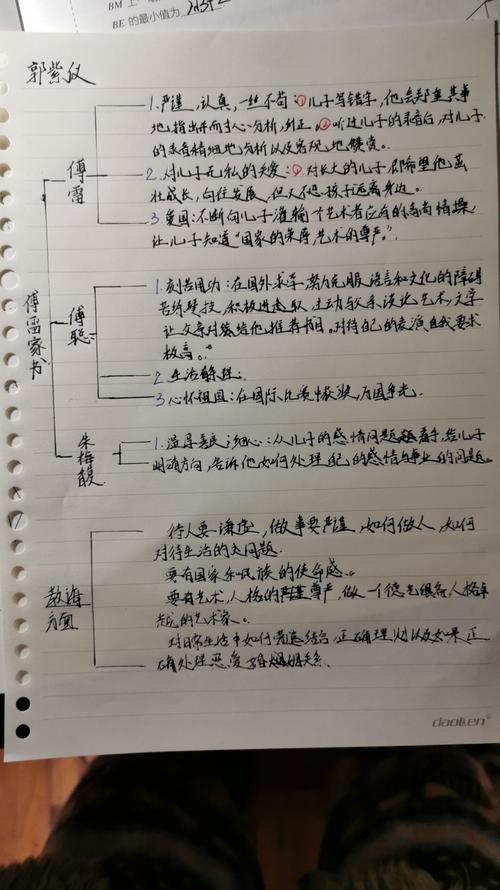 BM 上
BE 的最小值为
郭紫仪
傅雷家书
傅雷
1.严谨,认真,一丝不苟:①儿子写错字,他会郑重其事
地指出并耐心分析,纠正。②听过儿子的录音后,对儿子
的录音精细地分析以及客观地赞赏。
2.对儿子无私的关爱:①对长大的儿子,即希望他茁
壮成长,向往发展,但又不想孩子远离身边。
3爱国:不断向儿子灌输个艺术者应有的高尚情操,
让儿子知道“国家的荣辱,艺术的尊严”。
傅聪
1.刻苦用功:在国外求学,努力克服语言和文化的障碍
苦练琴技,积极进取,主动与父亲谈论艺术,文字
让父亲对 给他推荐书目。对待自己的表演自我要求
极高。
2生活 理:
3心怀祖国:在国际比赛中获奖,为国争光。
朱梅馥
1.温厚善良,细心:从儿子的感情问题 着手,给儿子
明确方向,告诉他如何处理自己的感情与事业的问题。
教诲方面
待人要谦虚,做事要严谨,如何做人,如何
对待生活的大问题.
要有国家和民族的使命感。
要有艺术,人格的尊严,做一个德艺俱备人格卓
越的艺术家。
对日常生活中如何劳逸结合,正确理财以及如果正
确处理恋爱婚姻关系.
daolien